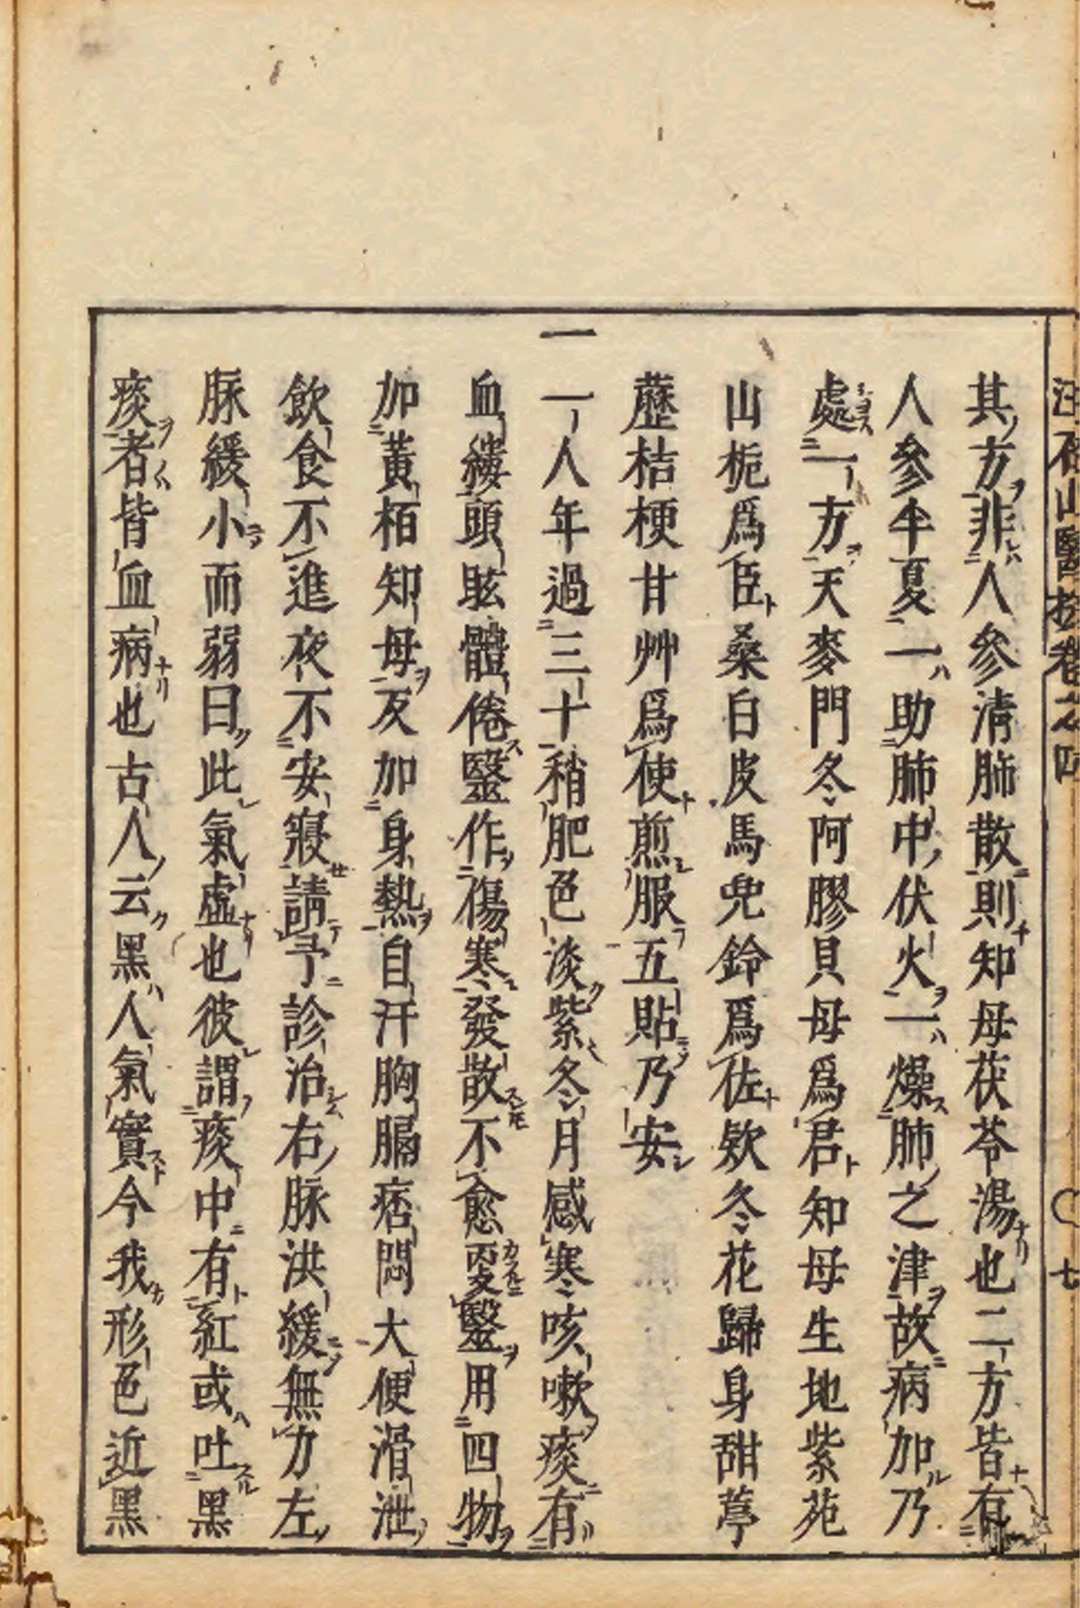 汪石山醫按卷之四 〇 七
其方非人參清肺散則知母茯苓湯也二方皆有
人參半夏一助肺中伏火一燥肺之津故病加乃
處一方天麥門冬阿膠貝母爲君知母生地紫苑
山梔爲臣桑白皮馬兜鈴爲佐欵冬花歸身甜葶
藶桔梗甘艸爲使煎服五貼乃安
一一人年過三十稍肥色淡紫冬月感寒咳嗽痰有
血縷頭眩體倦醫作傷寒發散不愈更醫用四物
加黃栢知母反加身熱自汗胸膈痞悶大便滑泄
飲食不進夜不安寢請予診治右脉洪緩無力左
脉緩小而弱曰此氣虛也彼謂痰中有紅或吐黑
痰者皆血病也古人云黑人氣實今我形色近黑